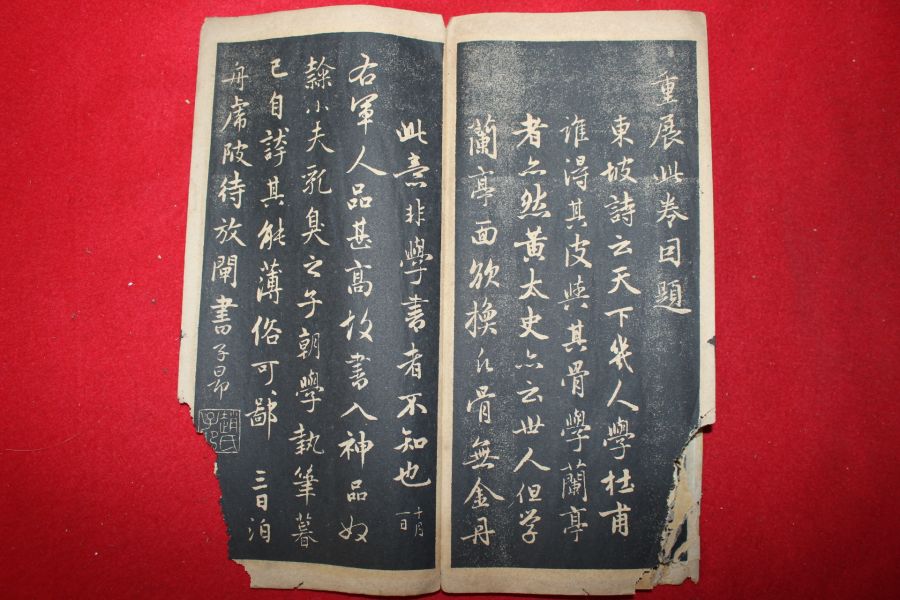 重展此卷因題
東坡詩云天下幾人學杜甫
誰得其皮與其骨學蘭亭
者亦然黃太史亦云世人但学
蘭亭面欲換凡骨無金丹
此意非學書者不知也十月
一日
右軍人品甚高故書入神品奴
隸小夫乳臭之子朝學執筆暮
已自誇其能薄俗可鄙 三日泊
舟虎陂待放閘書子昂
趙氏
子昂